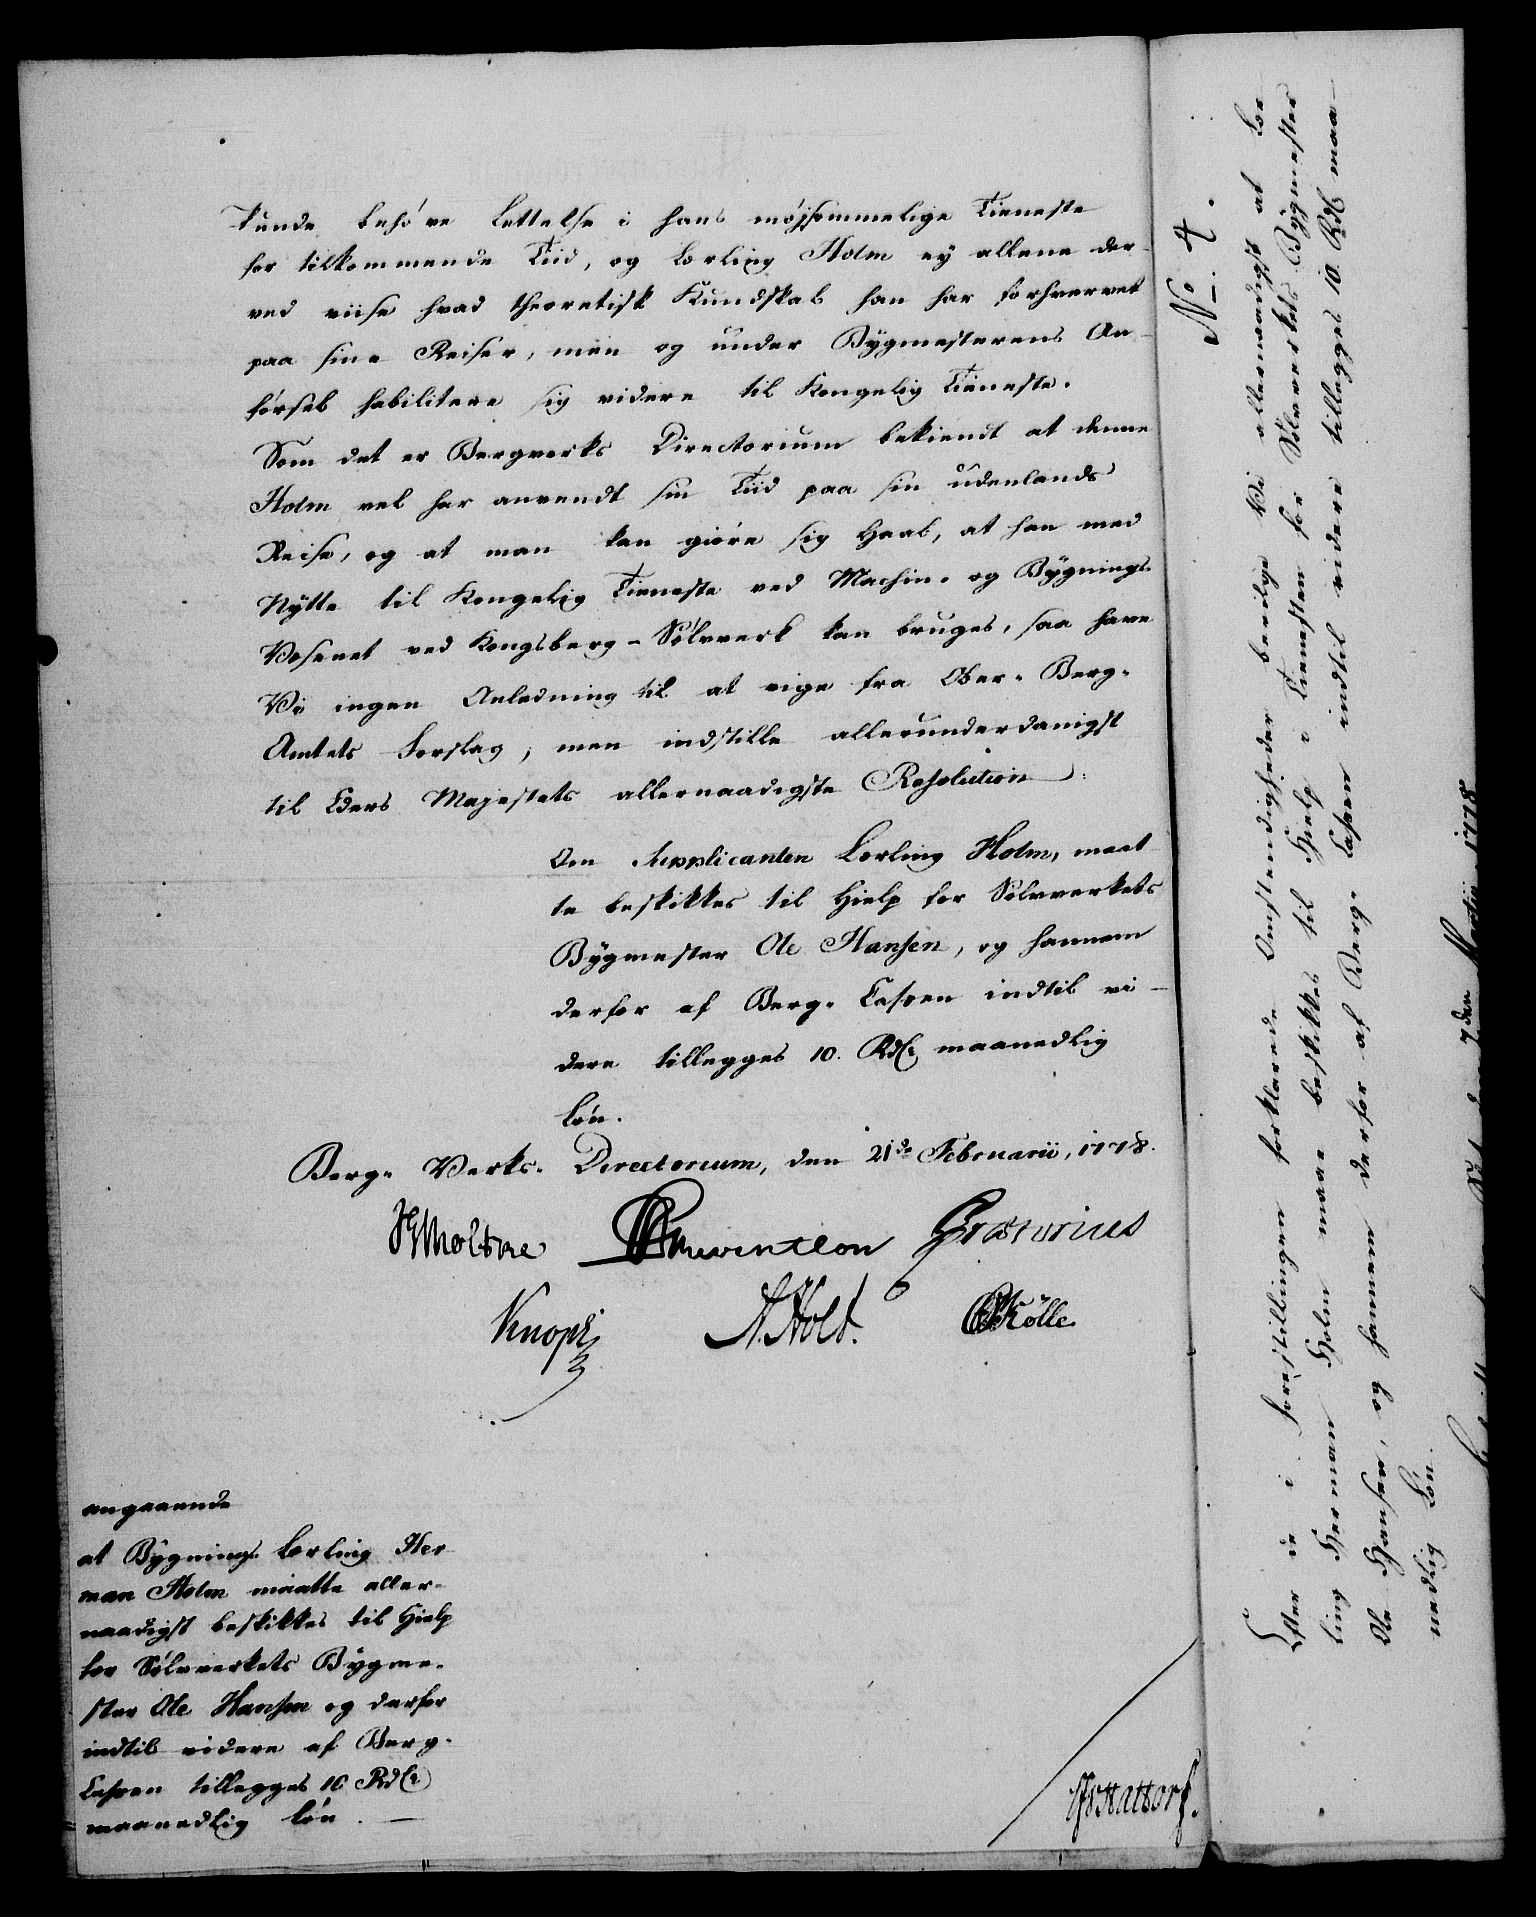 kunde behøve Lettelse i hans møjsommelige Tieneste
for tilkommende Tiid, og Lærling Holm ey allene der-
ved viise hvad theoretisk Kundskab han har forhvervet
paa sine Reiser, men og under Bygmesterens An-
førsel habilitere sig videre til Kongelig Tieneste.
Som det er Bergverks Directorium bekiendt at denne
Holm vel har anvendt sin Tiid paa sin udenlands
Reise, og at man kan giøre sig Haab, at han med
Nytte til Kongelig Tieneste ved Machin- og Bygnings
Væsenet ved Kongsberg-Sølvverk kan bruges, saa have
Vi ingen Anledning til at vige fra Ober-Berg-
Amtets Forslag, men indstille allerunderdanigst
til Eders Majestets allernaadigste Resolution:
Om Supplicanten Lærling Holm, maat
te beskikkes til Hielp for Sølvverkets
Bygmester Ole Hansen, og hannem
derfor af Berg-Cassen indtil vi-
dere tillegges 10. Rdlr maanedlig
Løn.
Berg-Verks-Directorium, den 21de Februarii, 1778.
Moltke Prætorius
Knoph A. Holt. Kölle
angaaende
at Bygnings Lærling Her
man Holm maatte aller-
naadigst beskikkes til Hielp
for Sølvverkets Bygme-
ster Ole Hansen og derfor
indtil videre af Berg-
Cassen tillegges 10 Rdlr
maanedlig Løn. —
Schattorf.
No. 4.
Efter de i Forestillingen forklarede Omstendigheder bevilge Vi allernaadigst at Lær
ling Herman Holm maae beskikkes til Hielp i Tienesten for Sølvverkets Bygmester
Ole Hansen, og hannem derfor af Berg-Cassen indtil videre tillegges 10 Rdlr maa-
nedlig Løn.
den 7den Martii 1778